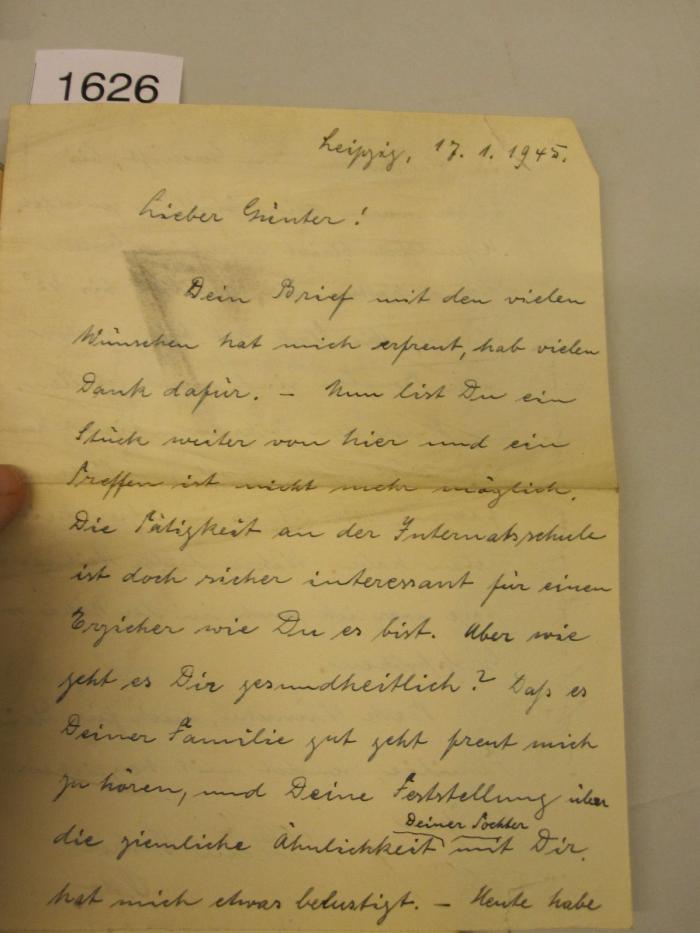 1626
Leipzig, 17. 1. 1945.
Lieber Günter!
Dein Brief mit den vielen
Wünschen hat mich erfreut, hab vielen
Dank dafür. – Nun bist Du ein
Stück weiter von hier und ein
Treffen ist nicht mehr möglich.
Die Tätigkeit an der Internatsschule
ist doch sicher interessant für einen
Erzieher wie Du es bist. Aber wie
geht es Dir gesundheitlich? Daß es
Deiner Familie gut geht freut mich
zu hören, und Deine Feststellung über
Deiner Tochter
die ziemliche Ähnlichkeit mit Dir,
hat mich etwas belustigt. – Heute habe